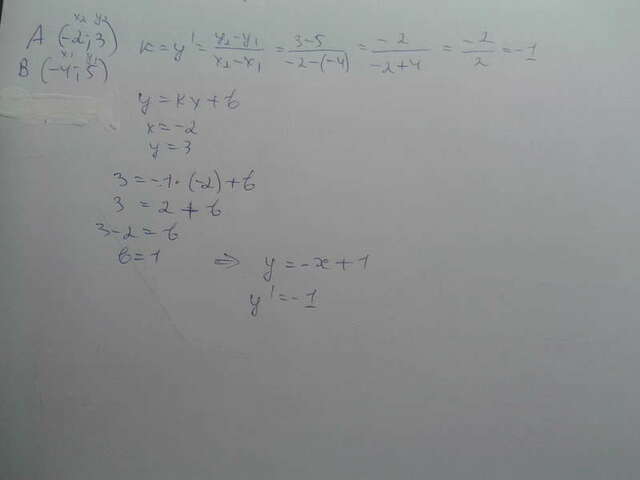 x₂ y₂
A (-2; 3)
x₁ y₁
B (-4; 5)
k = y' = \frac{y₂-y₁}{x₂-x₁} = \frac{3-5}{-2-(-4)} = \frac{-2}{-2+4} = \frac{-2}{2} = -1
y = kx + b
x = -2
y = 3
3 = -1 · (-2) + b
3 = 2 + b
3-2 = b
b = 1 ⇒ y = -x + 1
y' = -1